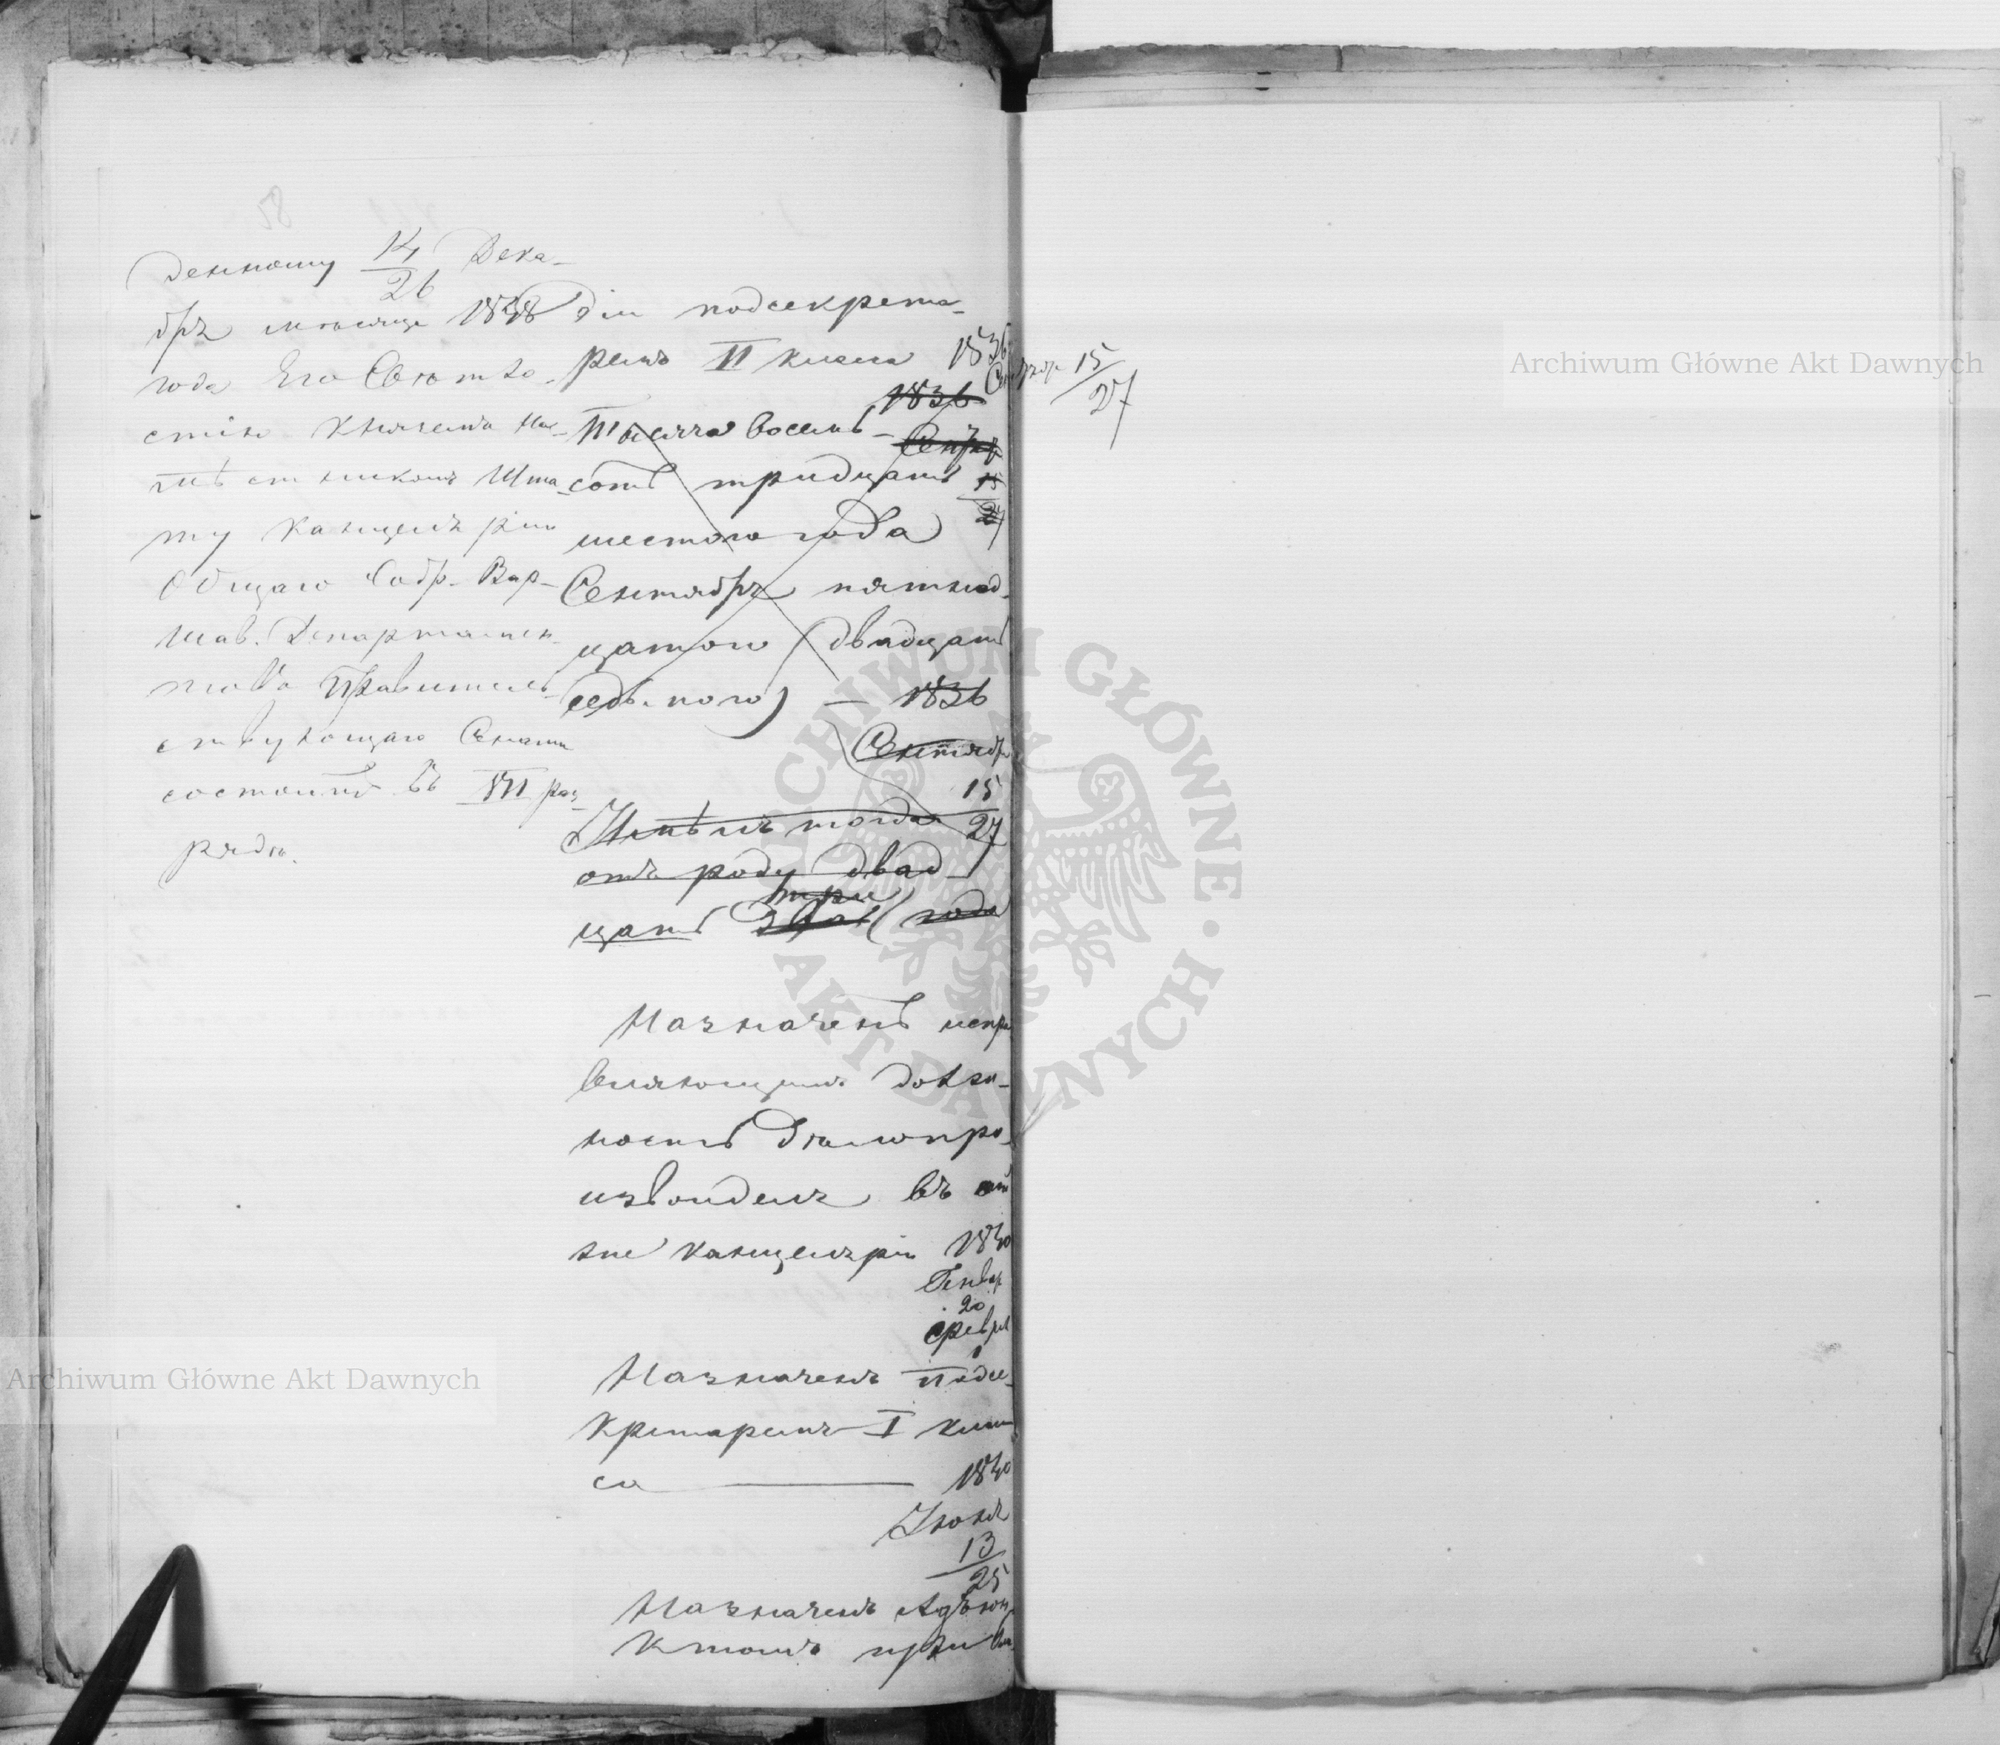 58
денному 14/26 Дека-
брѣ мѣсяце 1848
года Его Свѣтло-
стію Княземъ На-
мѣстникомъ Шта-
ту Канцеляріи
Общаго Собр. Вар-
шав. Департамен-
товъ Правитель-
ствующаго Сената
состоитъ въ VII раз-
рядѣ.
ріи подсекрета-
ремъ II класса 1836
15/27
1836
Тысяча восемь-
Сентяб
сотъ тридцать 15/27
шестого года
Сентября пятнад-
цатого (двадцать
седьмого) — 1836
Сентябр
15/27
Имѣлъ тогда
отъ роду двад-
три
цать два года
Назначенъ испра
вляющимъ долж-
ность Дѣлопро-
изводителя въ
же Канцеляріи 1840
Генвар
20
Февраля
Назначенъ подсе-
кретаремъ I клас
са — 1840
Іюня
13/25
Назначенъ Адъюн
ктомъ при
Archiwum Główne Akt Dawnych
Archiwum Główne Akt Dawnych
ARCHIWUM GŁÓWNE · AKT DAWNYCH ·